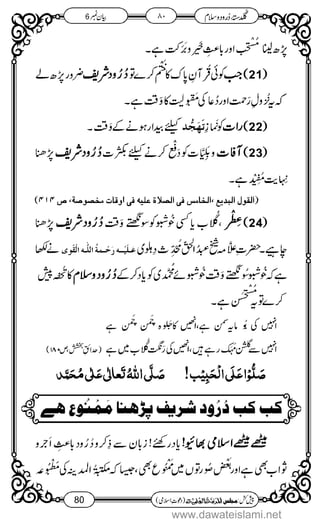 گلدستۂ درود و سلام ۸۰ بیان نمبر 6
پڑھ لینا مُسْتَحَب اور باعثِ خیر و برکت ہے۔
(21) جب کوئی قرآنِ پاک کا ختم کرے تو دُرُود شریف ضرور پڑھ لے
کہ یہ نُزولِ رحمت اور دُعا کی مقبولیت کا وقت ہے۔
(22) رات کو نمازِ تَہَجُّد کیلئے بیدار ہونے کے وقت۔
(23) آفات و بَلِیّات کو دفع کرنے کیلئے بکثرت دُرُود شریف پڑھنا
نہایت مُفید ہے۔
(القول البدیع ،الخامس فی الصلاة علیه فی اوقات مخصوصة، ص ۴۱۴)
(24) عِطْر، گُلاب یا کسی خوشبو کو سونگھتے وقت دُرُود شریف پڑھنا
چاہیے۔ حضرت علّامہ شیخ عبدُالحق مُحَدِّث دہلوی عَلَیْہِ رَحْمَۃُ اللہِ الْقَوِی نے لکھا
ہے کہ خوشبو سونگھتے وقت خوشبوئے محمدی کو یاد کر کے دُرُود و سلام کا تحفہ پیش
کرے تو یہ مُسْتَحْسَن ہے۔
انہیں کی بُو مایۂ سمن ہے، انہیں کا جلوہ چمن چمن ہے
انہیں سے گلشن مہک رہے ہیں، انہیں کی رنگت گلاب میں ہے (حدائقِ بخشش، ص۱۸۰)
صَلُّوْا عَلَی الْحَبِیْب! صَلَّی اللہُ تَعَالٰی عَلٰی مُحَمَّد
کب کب دُرُود شریف پڑھنا مَمْنُوع ہے
میٹھے میٹھے اسلامی بھائیو! یاد رکھئے! زبان سے ذِکر و دُرُود باعثِ اَجر و
ثواب بھی ہے اور بعض صورتوں میں ممنوع بھی، جیسا کہ مکتبۃ المدینہ کی مَطْبُوعہ
80
www.dawateislami.net